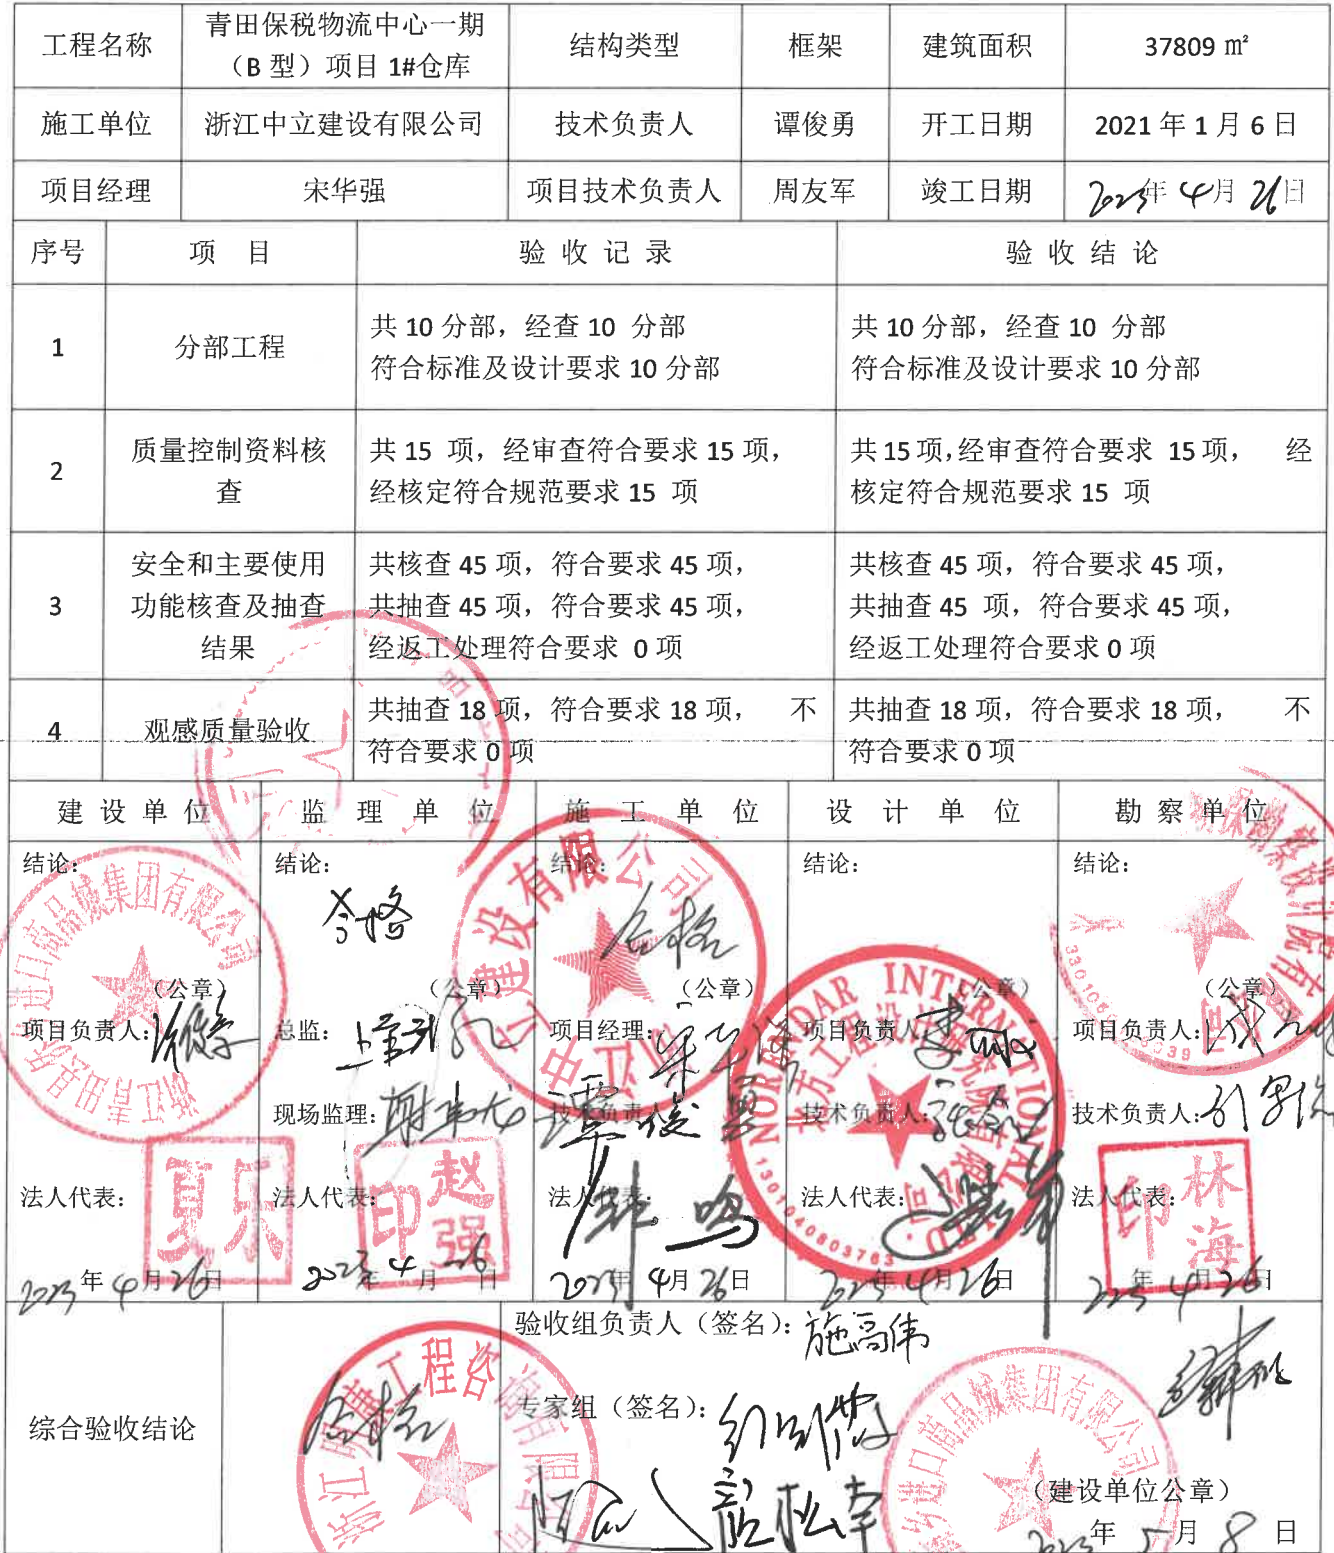 工程名称
青田保税物流中心一期
（B 型）项目 1#仓库
结构类型
框架
建筑面积
37809 ㎡
施工单位
浙江中立建设有限公司
技术负责人
谭俊勇
开工日期
2021 年 1 月 6 日
项目经理
宋华强
项目技术负责人
周友军
竣工日期
2023年 4月 26日
序号
项 目
验 收 记 录
验 收 结 论
1
分部工程
共 10 分部，经查 10 分部
符合标准及设计要求 10 分部
共 10 分部，经查 10 分部
符合标准及设计要求 10 分部
2
质量控制资料核
查
共 15 项，经审查符合要求 15 项，
经核定符合规范要求 15 项
共 15 项，经审查符合要求 15 项， 经
核定符合规范要求 15 项
3
安全和主要使用
功能核查及抽查
结果
共核查 45 项，符合要求 45 项，
共抽查 45 项，符合要求 45 项，
经返工处理符合要求 0 项
共核查 45 项，符合要求 45 项，
共抽查 45 项，符合要求 45 项，
经返工处理符合要求 0 项
4
观感质量验收
共抽查 18 项，符合要求 18 项， 不
符合要求 0 项
共抽查 18 项，符合要求 18 项， 不
符合要求 0 项
建 设 单 位
监 理 单 位
施 工 单 位
设 计 单 位
勘 察 单 位
结论：
（公章）
项目负责人：
法人代表：
2023 年 4 月 26 日
结论：
合格
（公章）
总监：
现场监理：
法人代表：
赵强印
2023 年 4 月 26 日
结论：
合格
（公章）
项目经理：
技术负责人：
谭俊勇
法人代表：
2023 年 4月 26 日
结论：
（公章）
项目负责人：
技术负责人：
法人代表：
2023 年 4 月 26 日
结论：
（公章）
项目负责人：
技术负责人：
法人代表：
林海印
2023 年 4 月 26 日
浙江青田县侨乡进口商品城集团有限公司
建设有限公司
NORENDAR INTERNATIONAL LTD.
北方工程设计研究院有限公司
1301040803763
综合验收结论
合格
验收组负责人（签名）：施高伟
专家组（签名）：
（建设单位公章）
2023 年 5 月 8 日